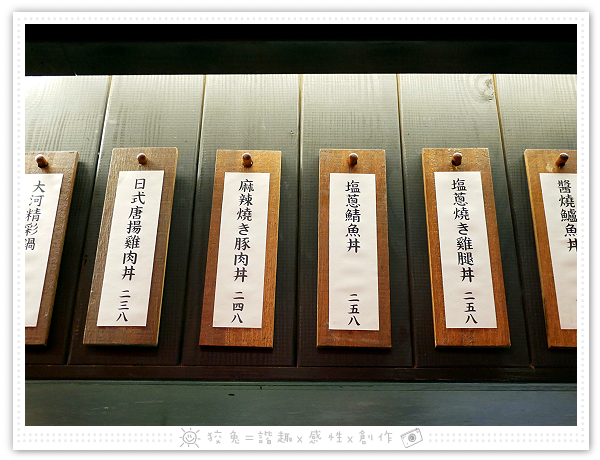 大河精彩鍋
日式唐揚雞肉丼 二三八
麻辣燒き豚肉丼 二四八
塩蔥鯖魚丼 二五八
塩蔥燒き雞腿丼 二五八
醬燒鱸魚丼
狡兔=諧趣x感性x創作